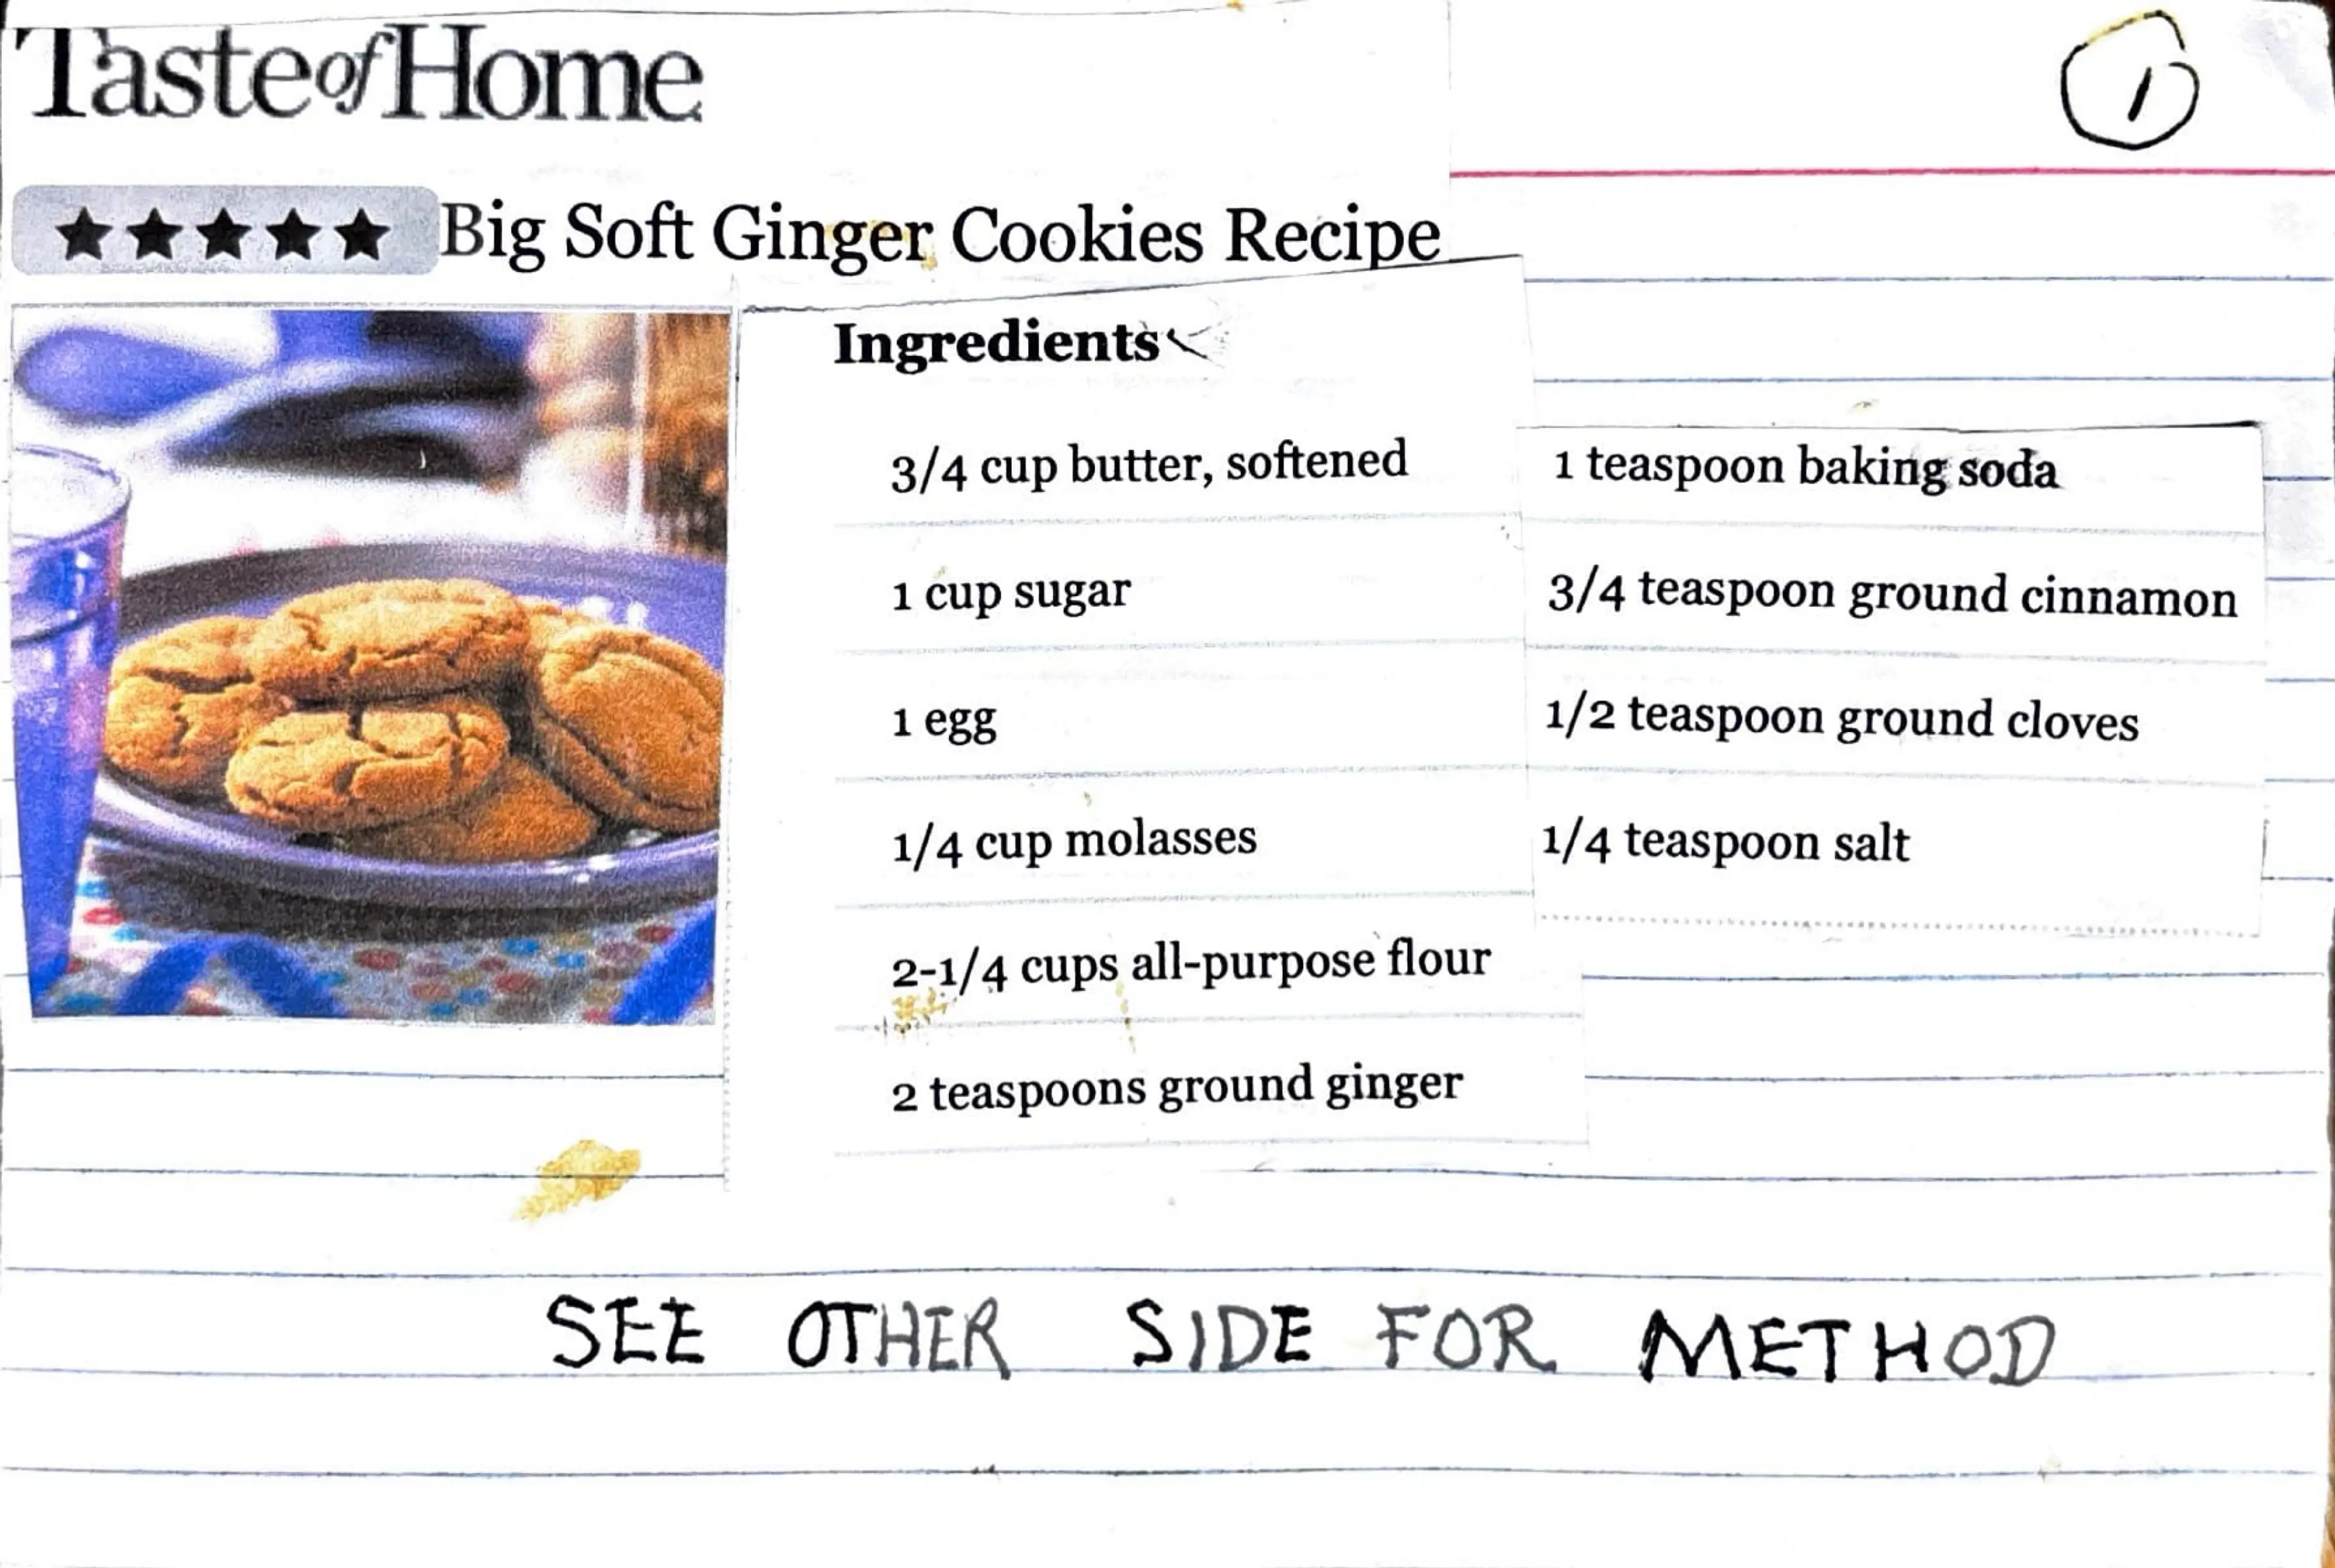 Taste of Home
1
★★★★★ Big Soft Ginger Cookies Recipe
Ingredients
3/4 cup butter, softened
1 cup sugar
1 egg
1/4 cup molasses
2-1/4 cups all-purpose flour
2 teaspoons ground ginger
1 teaspoon baking soda
3/4 teaspoon ground cinnamon
1/2 teaspoon ground cloves
1/4 teaspoon salt
SEE OTHER SIDE FOR METHOD